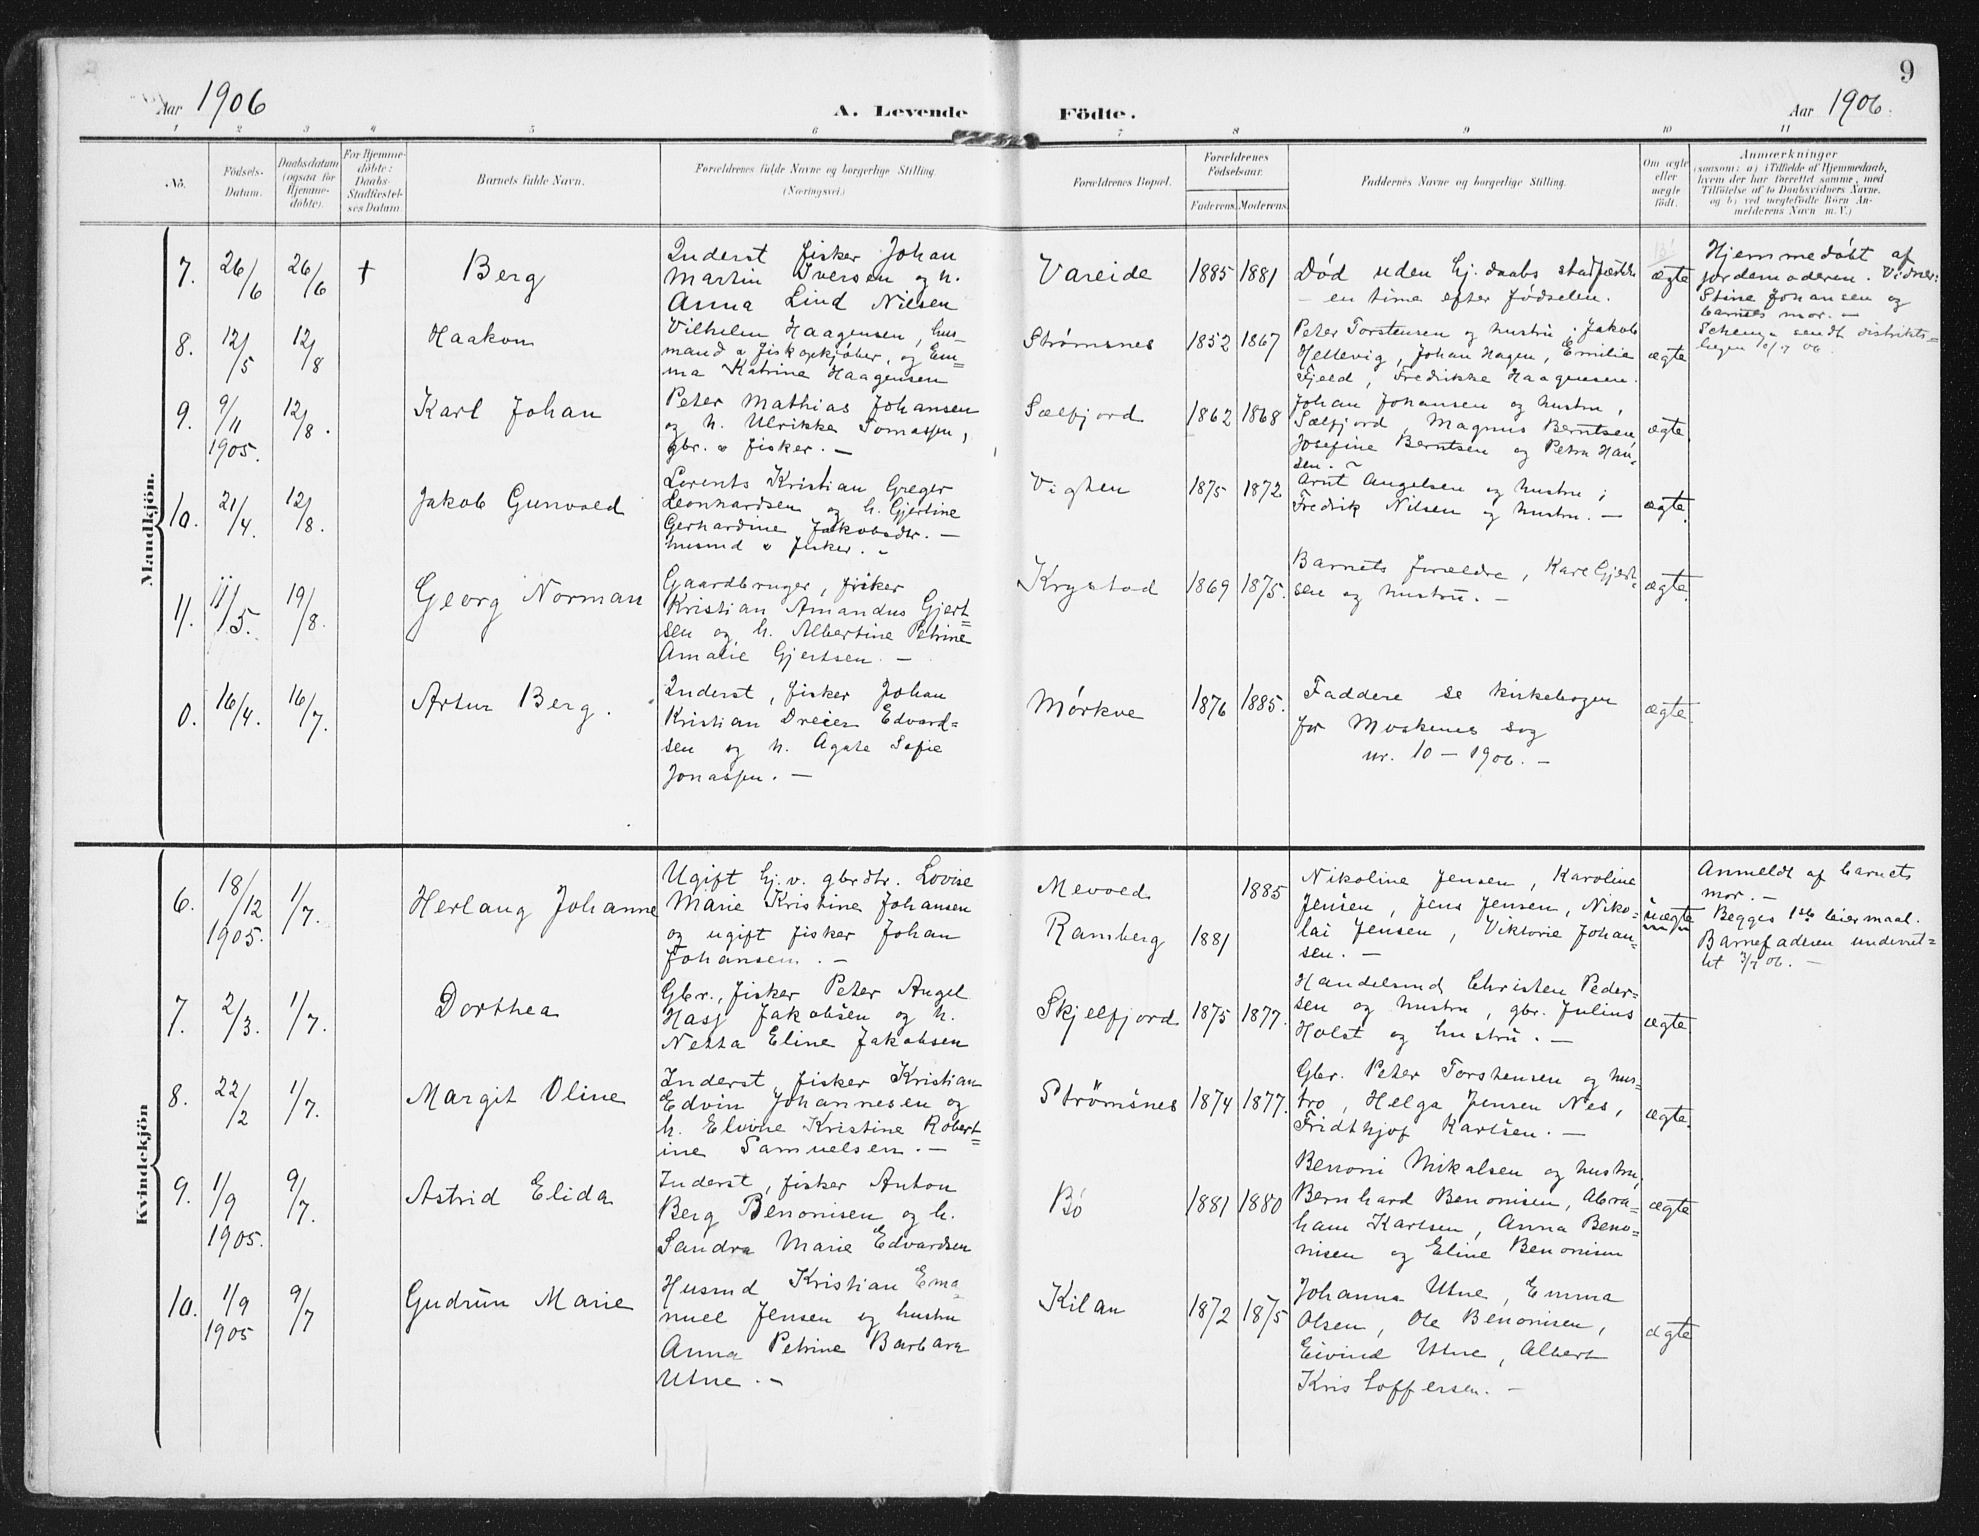 9
Aar 1906
A. Levende Födte.
Aar 1906.
1 2 3 4 5 6 7 8 9 10 11
No.
Födsels-
Datum.
Daabsdatum
(ogsaa for
Hjemme-
döbte).
For Hjemme-
döbte:
Daabs-
Stadfæstel-
ses Datum.
Barnets fulde Navn.
Forældrenes fulde Navne og borgerlige Stilling
(Næringsvei.)
Forældrenes Bopæl.
Forældrenes
Födselsaar.
Faderens. Moderens.
Faddernes Navne og borgerlige Stilling.
Om ægte
eller
uægte
födt.
Anmærkninger
(saasom: a) i Tilfælde af Hjemmedaab,
hvem der har forrettet samme, med
Tilföielse af to Daabsvidners Navne.
og b) ved uægtefödte Börn An-
melderens Navn m. V.)
Mandkjön.
7.
26/6
26/6
†
Berg
Inderst fisker Johan
Martin Iversen og h.
Anna Lind Nilsen
Vareide
1885
1881
Død uden hj. daabs stadfæstelse
– en time efter fødselen.
ægte
Hjemmedøbt af
jordemoderen. Vidner:
Stine Johansen og
barnets mor. –
Schema sendt distrikts-
8.
12/5
12/8
Haakon
Vilhelm Haagensen, hus-
mand & fiskopkjøber, og Em-
ma Katrine Haagensen
Strømsnes
1852
1867
Peter Torstensen og hustru, Jakob
Hellevig, Johan Hagen, Emilie
Fjeld, Fredrikke Haagensen.
ægte
9.
9/11
1905.
12/8.
Karl Johan
Peter Mathias Johansen
og h. Ulrikke Tomassen,
gbr. & fisker. –
Sælfjord
1862
1868
Johan Johansen og hustru,
Sælfjord, Magnus Berntsen,
Josefine Berntsen og Petra Han-
sen. –
ægte.
10.
21/4.
12/8.
Jakob Gunvald
Lorents Kristian Greger
Leonhardsen og h. Gjertine
Gerhardine Jakobsdtr. –
husmd & fisker. –
Vigten
1875
1872
Arnt Angelsen og hustru,
Fredrik Nilsen og hustru. –
ægte.
11.
11/5.
19/8.
Georg Norman
Gaardbruger, fisker
Kristian Amandus Gjert-
sen og h. Albertine Petrine
Amalie Gjertsen. –
Krystad
1869
1875.
Barnets forældre, Karl Gjert-
sen og hustru. –
ægte.
0.
16/4.
16/7.
Artur Berg.
Inderst, fisker Johan
Kristian Dreier Edvard-
sen og h. Agate Sofie
Jonassen. –
Mørkve
1876
1885.
Faddere se kirkebogen
for Moskenes sog
nr. 10 – 1906. –
ægte.
Kvindekjön
6.
18/12
1905.
1/7.
Herlaug Johanne
Ugift hj. v. gbrdtr. Lovise
Marie Kristine Johansen
og ugift fisker Johan
Johansen. –
Mevold
Ramberg
1881
1885
Nikoline Jensen, Karoline
Jensen, Jens Jensen, Niko-
lai Jensen, Viktorie Johan-
sen. –
uægte
Anmeldt af barnets
mor. –
Begges 1ste leiermaal.
Barnefaderen underret-
tet 3/7 06. –
7.
2/3.
1/7.
Dorthea
Gbr., fisker Peter Angel
Hasj Jakobsen og h.
Netta Eline Jakobsen
Skjelfjord
1875
1877.
Handelsmd Christen Peder-
sen og hustru, gbr. Julius
Holst og hustru. –
ægte
8.
22/2
1/7.
Margit Oline
Inderst, fisker Kristian
Edvin Johannesen og
h. Elvine Kristine Robert-
ine Samuelsen. –
Strømsnes
1874
1877.
Gbr. Peter Torstensen og hus-
tro, Helga Jensen Nes,
Fridthjof Karlsen. –
ægte.
9.
1/9
1905.
9/7.
Astrid Elida
Inderst, fisker Anton
Berg Benonisen og h.
Sandra Marie Edvardsen
Bø
1881
1880
Benoni Mikalsen og hustru,
Bernhard Benonisen, Abra-
ham Karlsen, Anna Beno-
nisen og Eline Benonisen
ægte
10.
1/9
1905
9/7
Gudrun Marie
Husmd Kristian Ema-
nuel Jensen og hustru
Anna Petrine Barbara
Utne. –
Kilan
1872
1875
Johanna Utne, Emma
Olsen, Ole Benonisen,
Eivind Utne, Albert
Kristoffersen. –
ægte